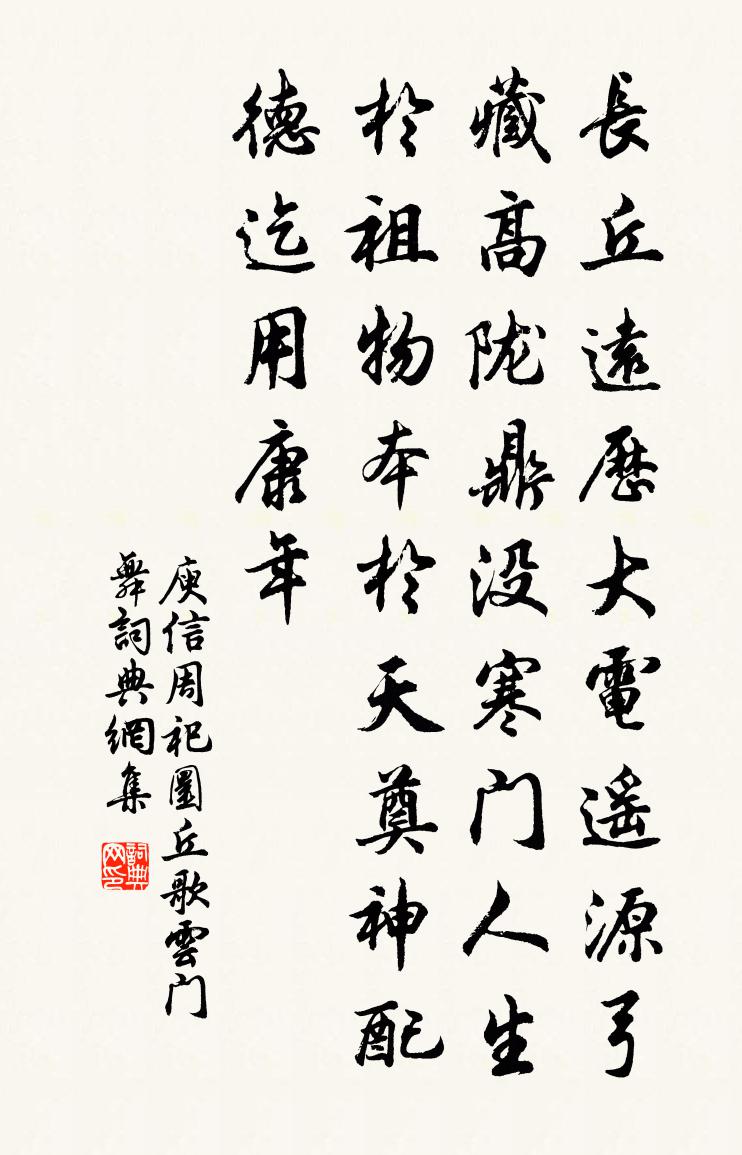 長丘遠歷大電遥源弓
藏高陇鼎没寒门人生
於祖物本於天奠神配
德迄用康年
庾信周祀圜丘歌雲门
舞詞典網集
詞典网印